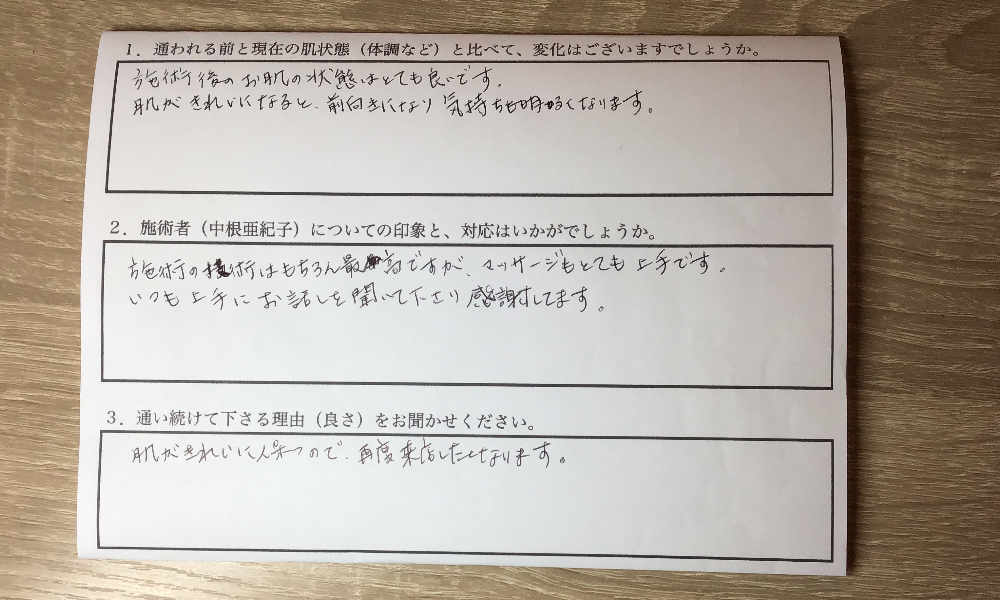 1．通われる前と現在の肌状態（体調など）と比べて、変化はございますでしょうか。
施術後のお肌の状態はとても良いです。
肌がきれいになると、前向きになり気持ちも明るくなります。
2．施術者（中根亜紀子）についての印象と、対応はいかがでしょうか。
施術の技術はもちろん最高ですが、マッサージもとても上手です。
いつも上手にお話しを聞いて下さり感謝してます。
3．通い続けて下さる理由（良さ）をお聞かせください。
肌がきれいに保つので、再度来店したくなります。